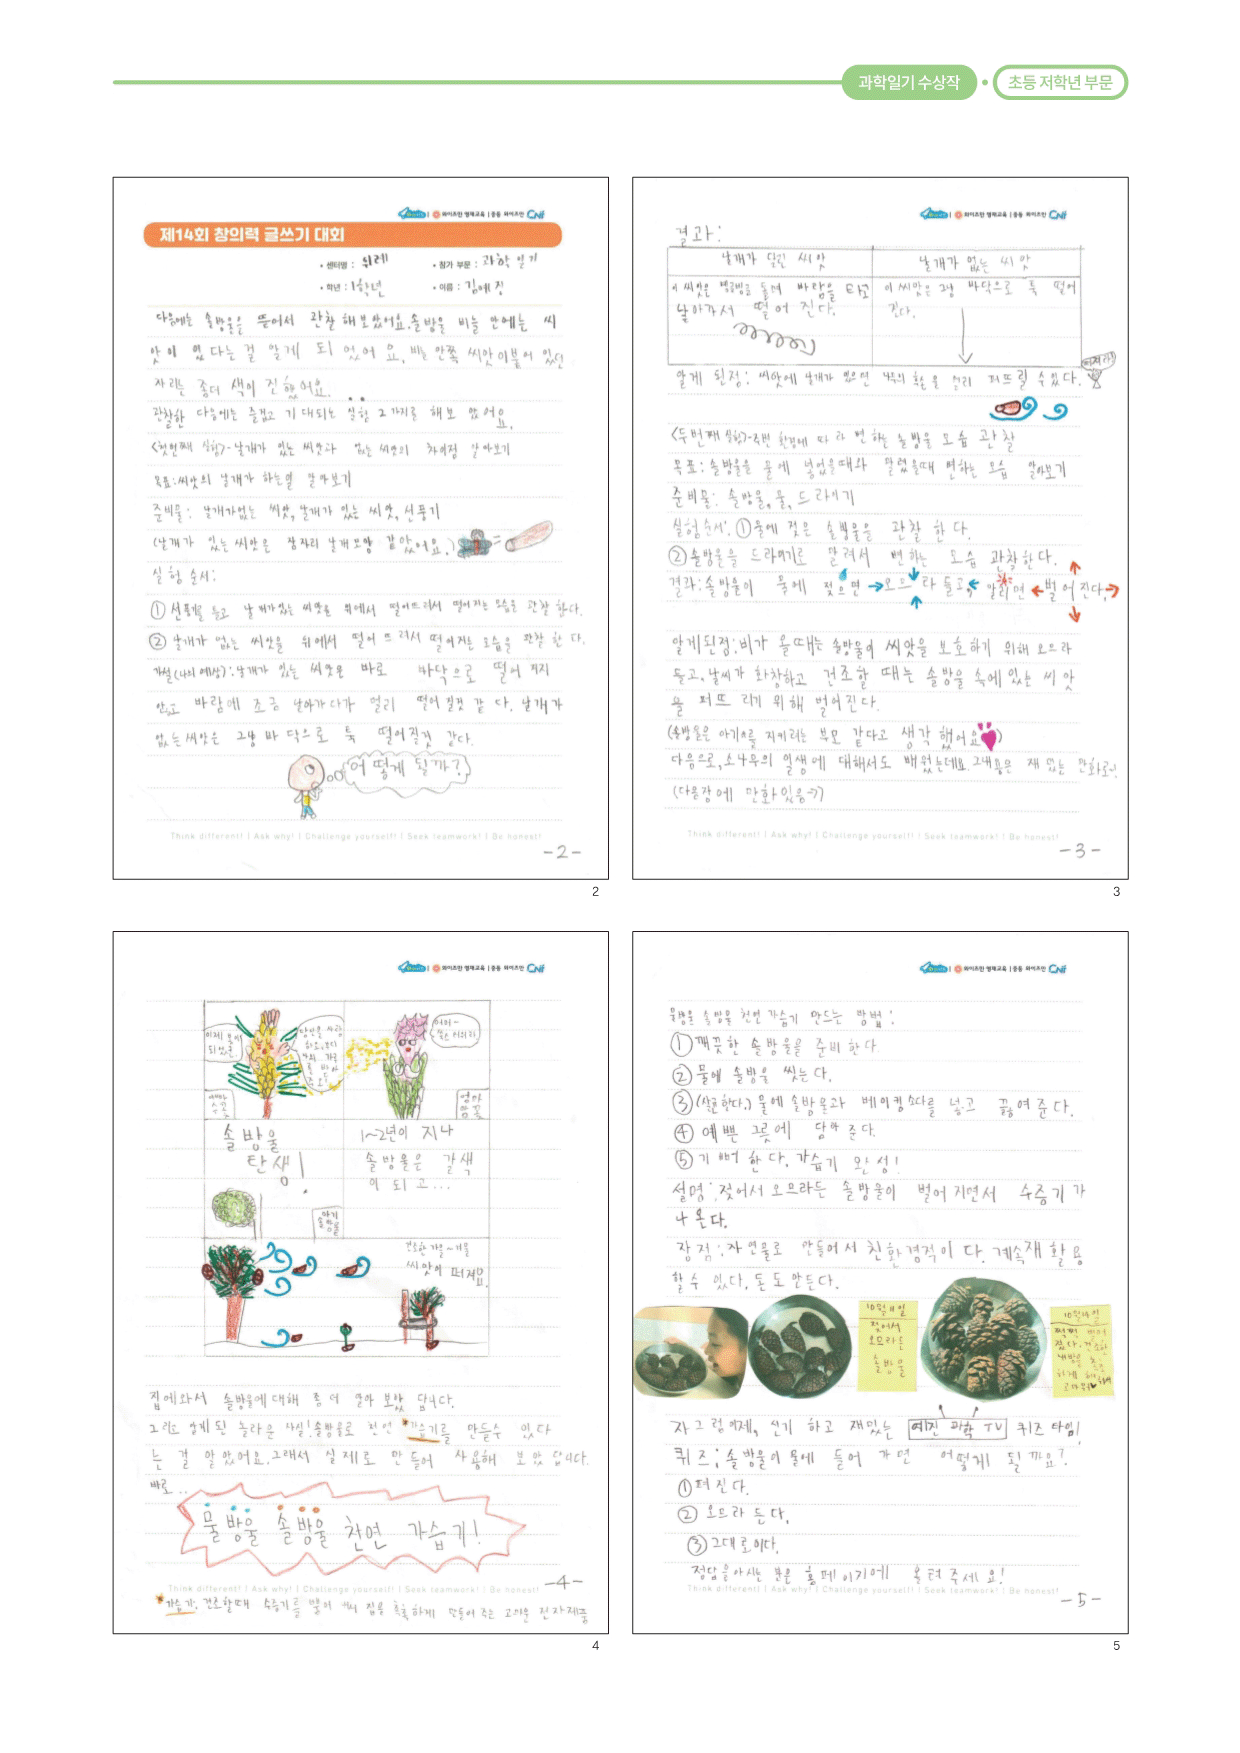 과학일기 수상작 • 초등 저학년 부문
와이즈만 영재교육 | 중등 와이즈만 CNI
제14회 창의력 글쓰기 대회
• 센터명 : 위례 • 참가 부문 : 과학 일기
• 학년 : 1학년 • 이름 : 김예진
다음에는 솔방울을 뜯어서 관찰 해보았어요. 솔방울 비늘 안에는 씨
앗이 있다는 걸 알게 되었어요. 비늘 안쪽 씨앗이 붙어 있던
자리는 좀더 색이 진했어요.
관찰한 다음에는 즐겁고 기대되는 실험 2가지를 해보았어요.
<첫번째 실험>-날개가 있는 씨앗과 없는 씨앗의 차이점 알아보기
목표:씨앗의 날개가 하는일 알아보기
준비물: 날개가없는 씨앗, 날개가 있는 씨앗, 선풍기
(날개가 있는 씨앗은 잠자리 날개모양 같았어요.)
실험 순서:
① 선풍기를 틀고 날개가있는 씨앗을 위에서 떨어뜨려서 떨어지는 모습을 관찰 한다.
② 날개가 없는 씨앗을 위에서 떨어뜨려서 떨어지는 모습을 관찰 한다.
가설(나의 예상):날개가 있는 씨앗은 바로 바닥으로 떨어지지
않고 바람에 조금 날아가다가 멀리 떨어질것 같다. 날개가
없는씨앗은 그냥 바닥으로 툭 떨어질것 같다.
어떻게 될까?
Think different! | Ask why! | Challenge yourself! | Seek teamwork! | Be honest!
-2-
2
와이즈만 영재교육 | 중등 와이즈만 CNI
결과:
날개가 달린 씨앗 날개가 없는 씨앗
이 씨앗은 빙글빙글 돌며 바람을 타고 이 씨앗은 그냥 바닥으로 툭 떨어
날아가서 떨어진다. 진다.
퍼져라!
알게 된점: 씨앗에 날개가 있으면 멀리 퍼뜨릴 수 있다.
<두번째 실험>-주변 환경에 따라 변하는 솔방울 모습 관찰
목표: 솔방울을 물에 넣었을때와 말렸을때 변하는 모습 알아보기
준비물: 솔방울, 물, 드라이기
실험순서: ①물에 젖은 솔방울을 관찰 한다.
②솔방울을 드라이기로 말려서 변하는 모습 관찰한다.
결과:솔방울이 물에 젖으면 오므라 들고, 말리면 벌어진다.
알게된점:비가 올때는 솔방울이 씨앗을 보호하기 위해 오므라
들고, 날씨가 화창하고 건조할 때는 솔방울 속에 있는 씨앗
을 퍼뜨리기 위해 벌어진다.
(솔방울은 아기를 지키려는 부모 같다고 생각했어요)
다음으로, 소나무의 일생에 대해서도 배웠는데요. 그내용은 재밌는 만화로~!
(다음장에 만화있음→)
Think different! | Ask why! | Challenge yourself! | Seek teamwork! | Be honest!
-3-
3
와이즈만 영재교육 | 중등 와이즈만 CNI
솔방울
탄생!
1~2년이 지나
솔방울은 갈색
이 되고...
아기
솔방울
건조한 가을~겨울
씨앗이 퍼져요.
집에와서 솔방울에 대해 좀 더 알아 보았답니다.
그리고 알게된 놀라운 사실! 솔방울로 천연 *가습기를 만들수 있다
는 걸 알았어요. 그래서 실제로 만들어 사용해 보았답니다.
바로..
물방울 솔방울 천연 가습기!
Think different! | Ask why! | Challenge yourself! | Seek teamwork! | Be honest!
-4-
*가습기: 건조할때 수증기를 집을 촉촉하게 만들어 주는 고마운 전자제품
4
와이즈만 영재교육 | 중등 와이즈만 CNI
물방울 솔방울 천연 가습기 만드는 방법:
①깨끗한 솔방울을 준비한다.
②물에 솔방울 씻는다.
③(살균한다.) 물에 솔방울과 베이킹소다를 넣고 끓여준다.
④ 예쁜 그릇에 담아 준다.
⑤기뻐한다. 가습기 완성!
설명:젖어서 오므라든 솔방울이 벌어지면서 수증기가
나온다.
장점:자연물로 만들어서 친환경적이다. 계속재활용
할수 있다. 돈도 안든다.
10월 11일
젖어서
오므라든
솔방울
10월14일
자 그럼 이제, 신기하고 재밌는 예진 과학 TV 퀴즈 타임!
퀴즈:솔방울이 물에 들어가면 어떻게 될까요?
①퍼진다.
② 오므라든다.
③그대로이다.
정답을아시는 분은 홈페이지에 올려주세요!
Think different! | Ask why! | Challenge yourself! | Seek teamwork! | Be honest!
-5-
5